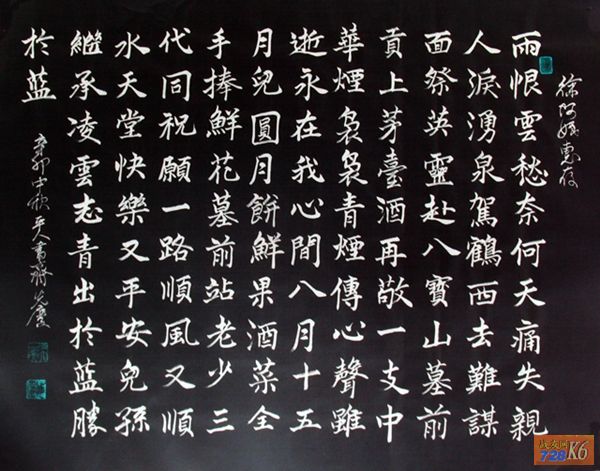 徐阿姨惠存
雨恨雲愁奈何天痛失親
人淚湧泉駕鶴西去難謀
面祭英靈赴八寶山墓前
貢上茅臺酒再敬一支中
華煙裊裊青煙傳心聲雖
逝永在我心間八月十五
月兒圓月餅鮮果酒菜全
手捧鮮花墓前站老少三
代同祝願一路順風又順
水天堂快樂又平安兒孫
繼承凌雲志青出於蓝勝
於蓝
辛卯中秋平人書蔣
战友网
728K6